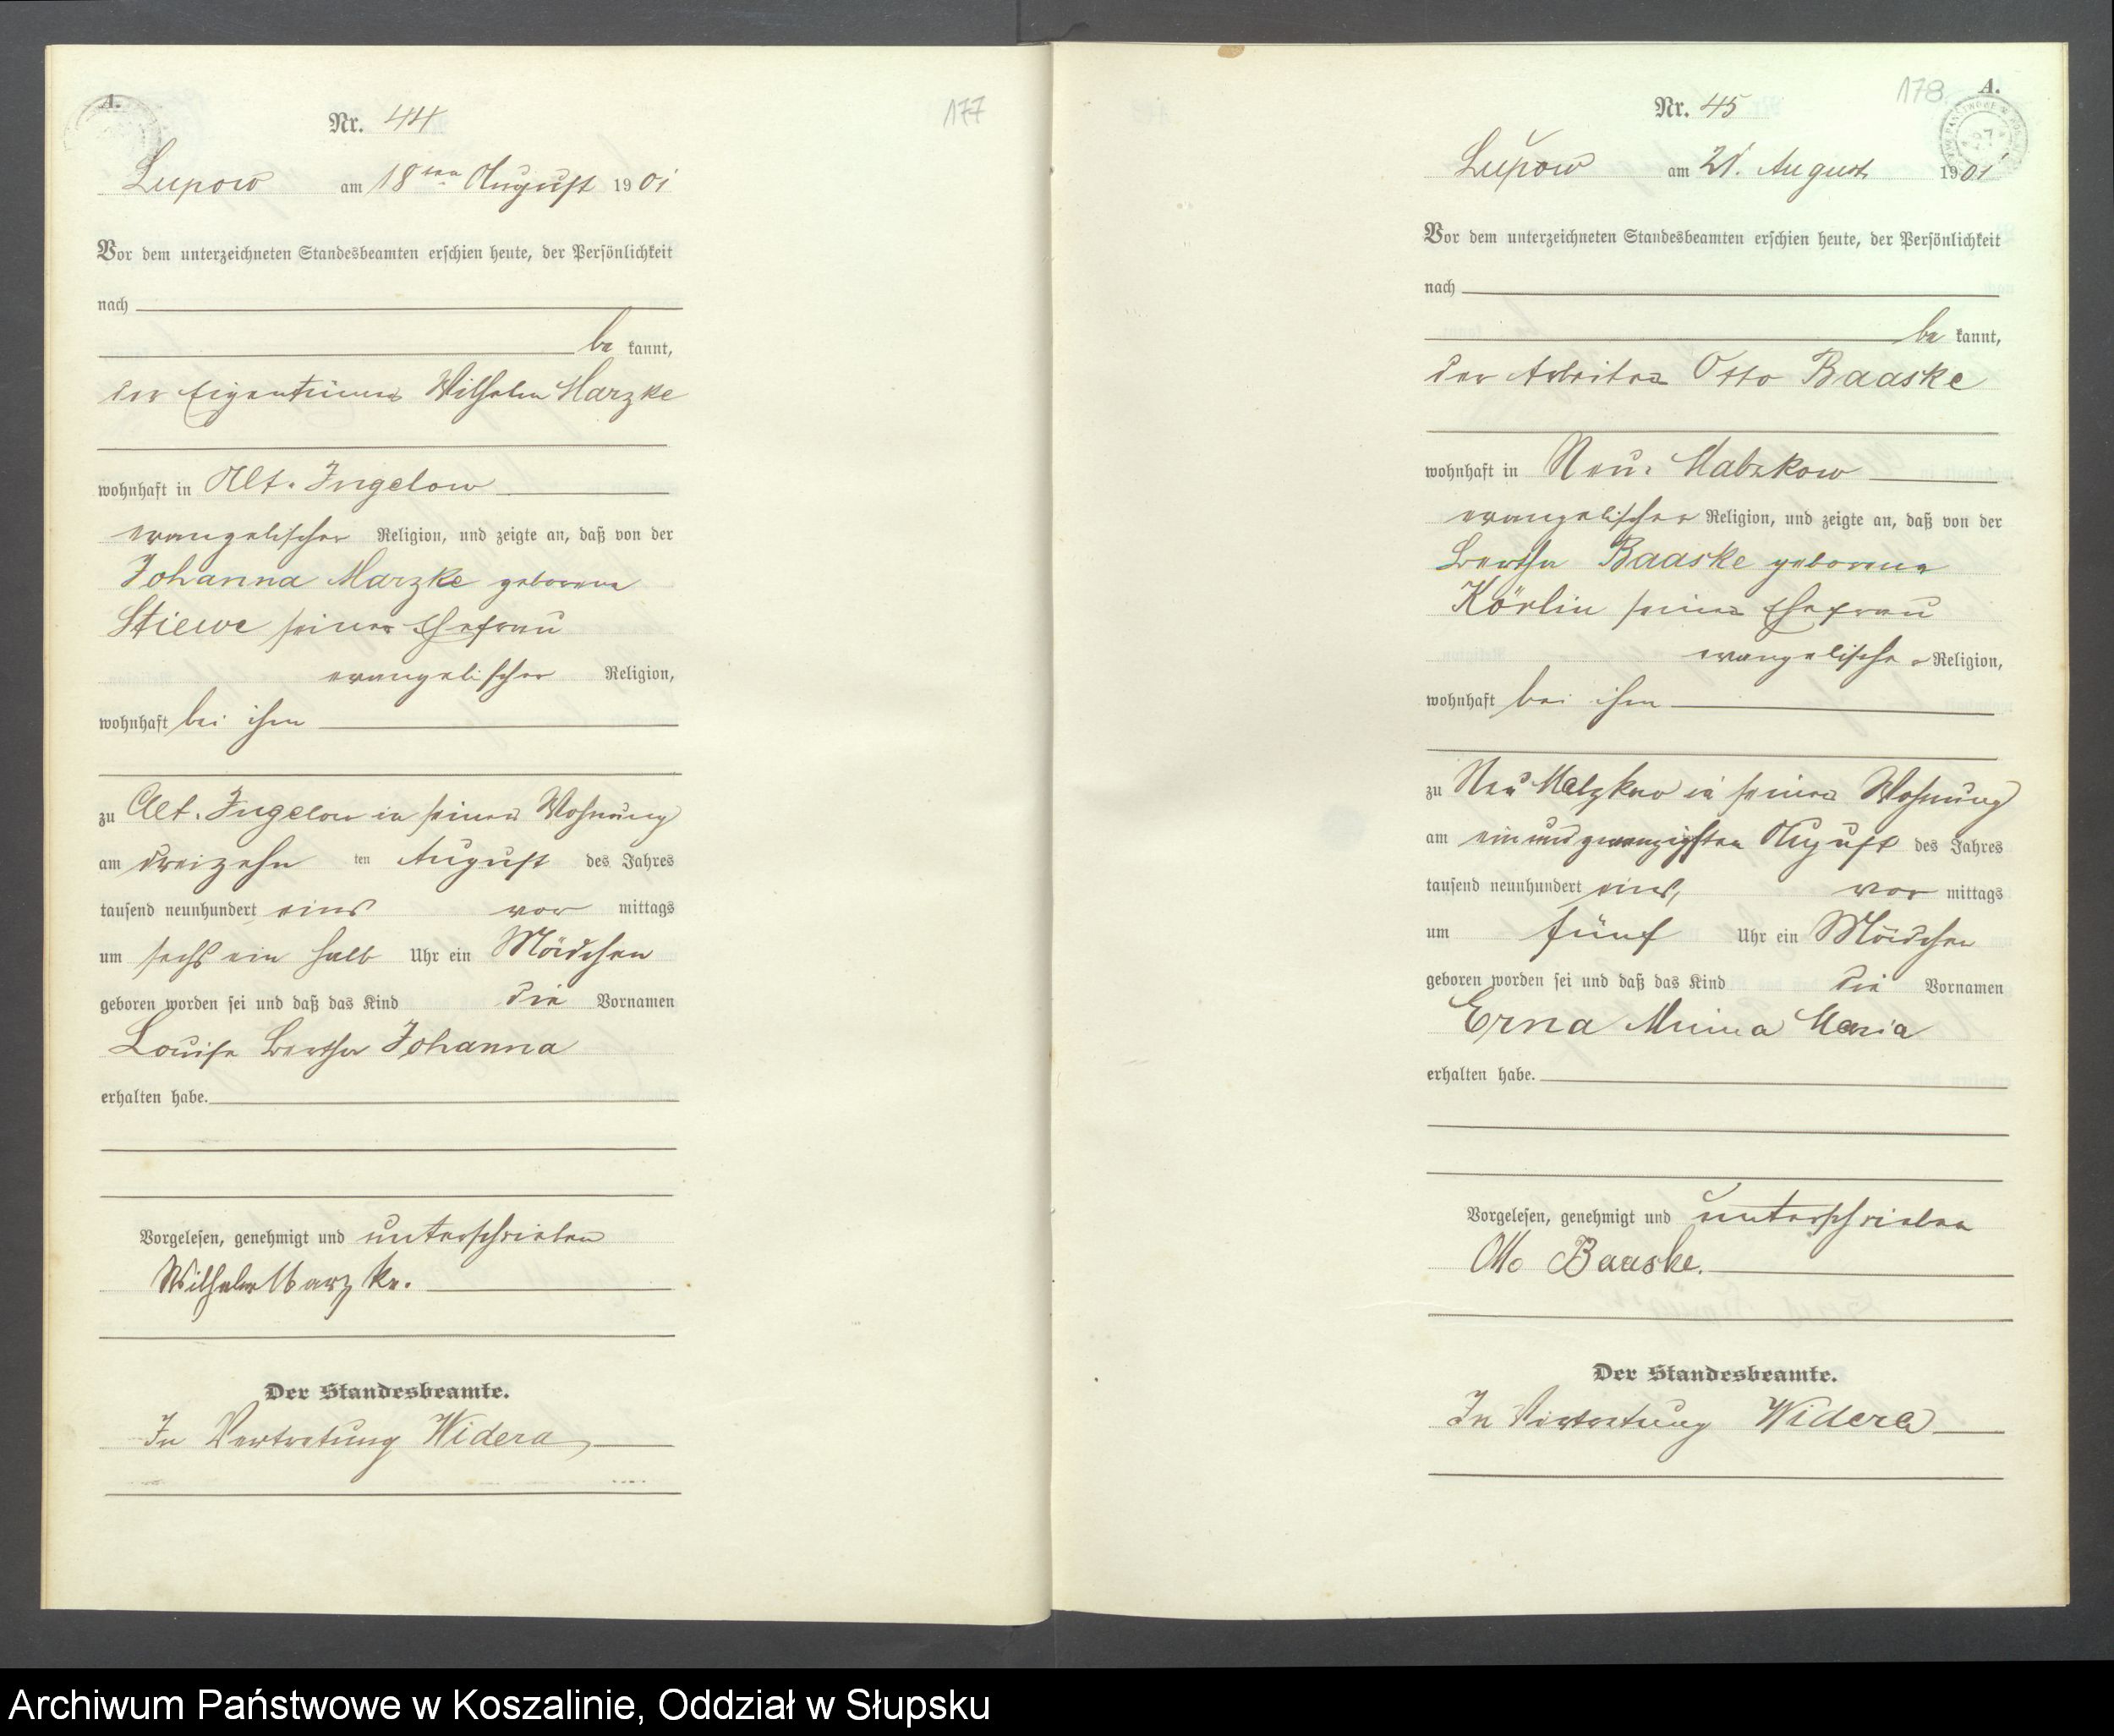 A.
177
Nr. 44
Lupow am 18ten August 1901
Vor dem unterzeichneten Standesbeamten erschien heute, der Persönlichkeit
nach
be kannt,
der Eigentümer Wilhelm Marzke
wohnhaft in Alt-Jugelow
evangelischer Religion, und zeigte an, daß von der
Johanna Marzke geborene
Stiewe seiner Ehefrau
evangelischer Religion,
wohnhaft bei ihm
zu Alt-Jugelow in seiner Wohnung
am dreizehn ten August des Jahres
tausend neunhundert eins vor mittags
um sechs ein halb Uhr ein Mädchen
geboren worden sei und daß das Kind die Vornamen
Louise Bertha Johanna
erhalten habe.
Vorgelesen, genehmigt und unterschrieben
Wilhelm Marzke.
Der Standesbeamte.
In Vertretung Widera
178
A.
Nr. 45
Lupow am 21. August 1901
Vor dem unterzeichneten Standesbeamten erschien heute, der Persönlichkeit
nach
be kannt,
der Arbeiter Otto Baaske
wohnhaft in Neu-Malzkow
evangelischer Religion, und zeigte an, daß von der
Bertha Baaske geborene
Körlin seiner Ehefrau
evangelischer Religion,
wohnhaft bei ihm
zu Neu Malzkow in seiner Wohnung
am einundzwanzigsten August des Jahres
tausend neunhundert eins, vor mittags
um fünf Uhr ein Mädchen
geboren worden sei und daß das Kind die Vornamen
Erna Minna Maria
erhalten habe.
Vorgelesen, genehmigt und unterschrieben
Otto Baaske.
Der Standesbeamte.
In Vertretung Widera
Archiwum Państwowe w Koszalinie, Oddział w Słupsku